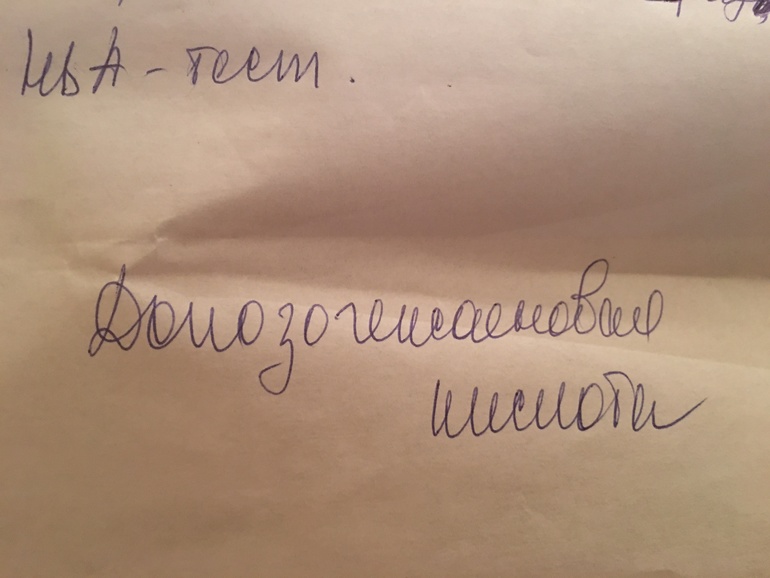 НЬА - тест.
Докозогексаеновая
кислота